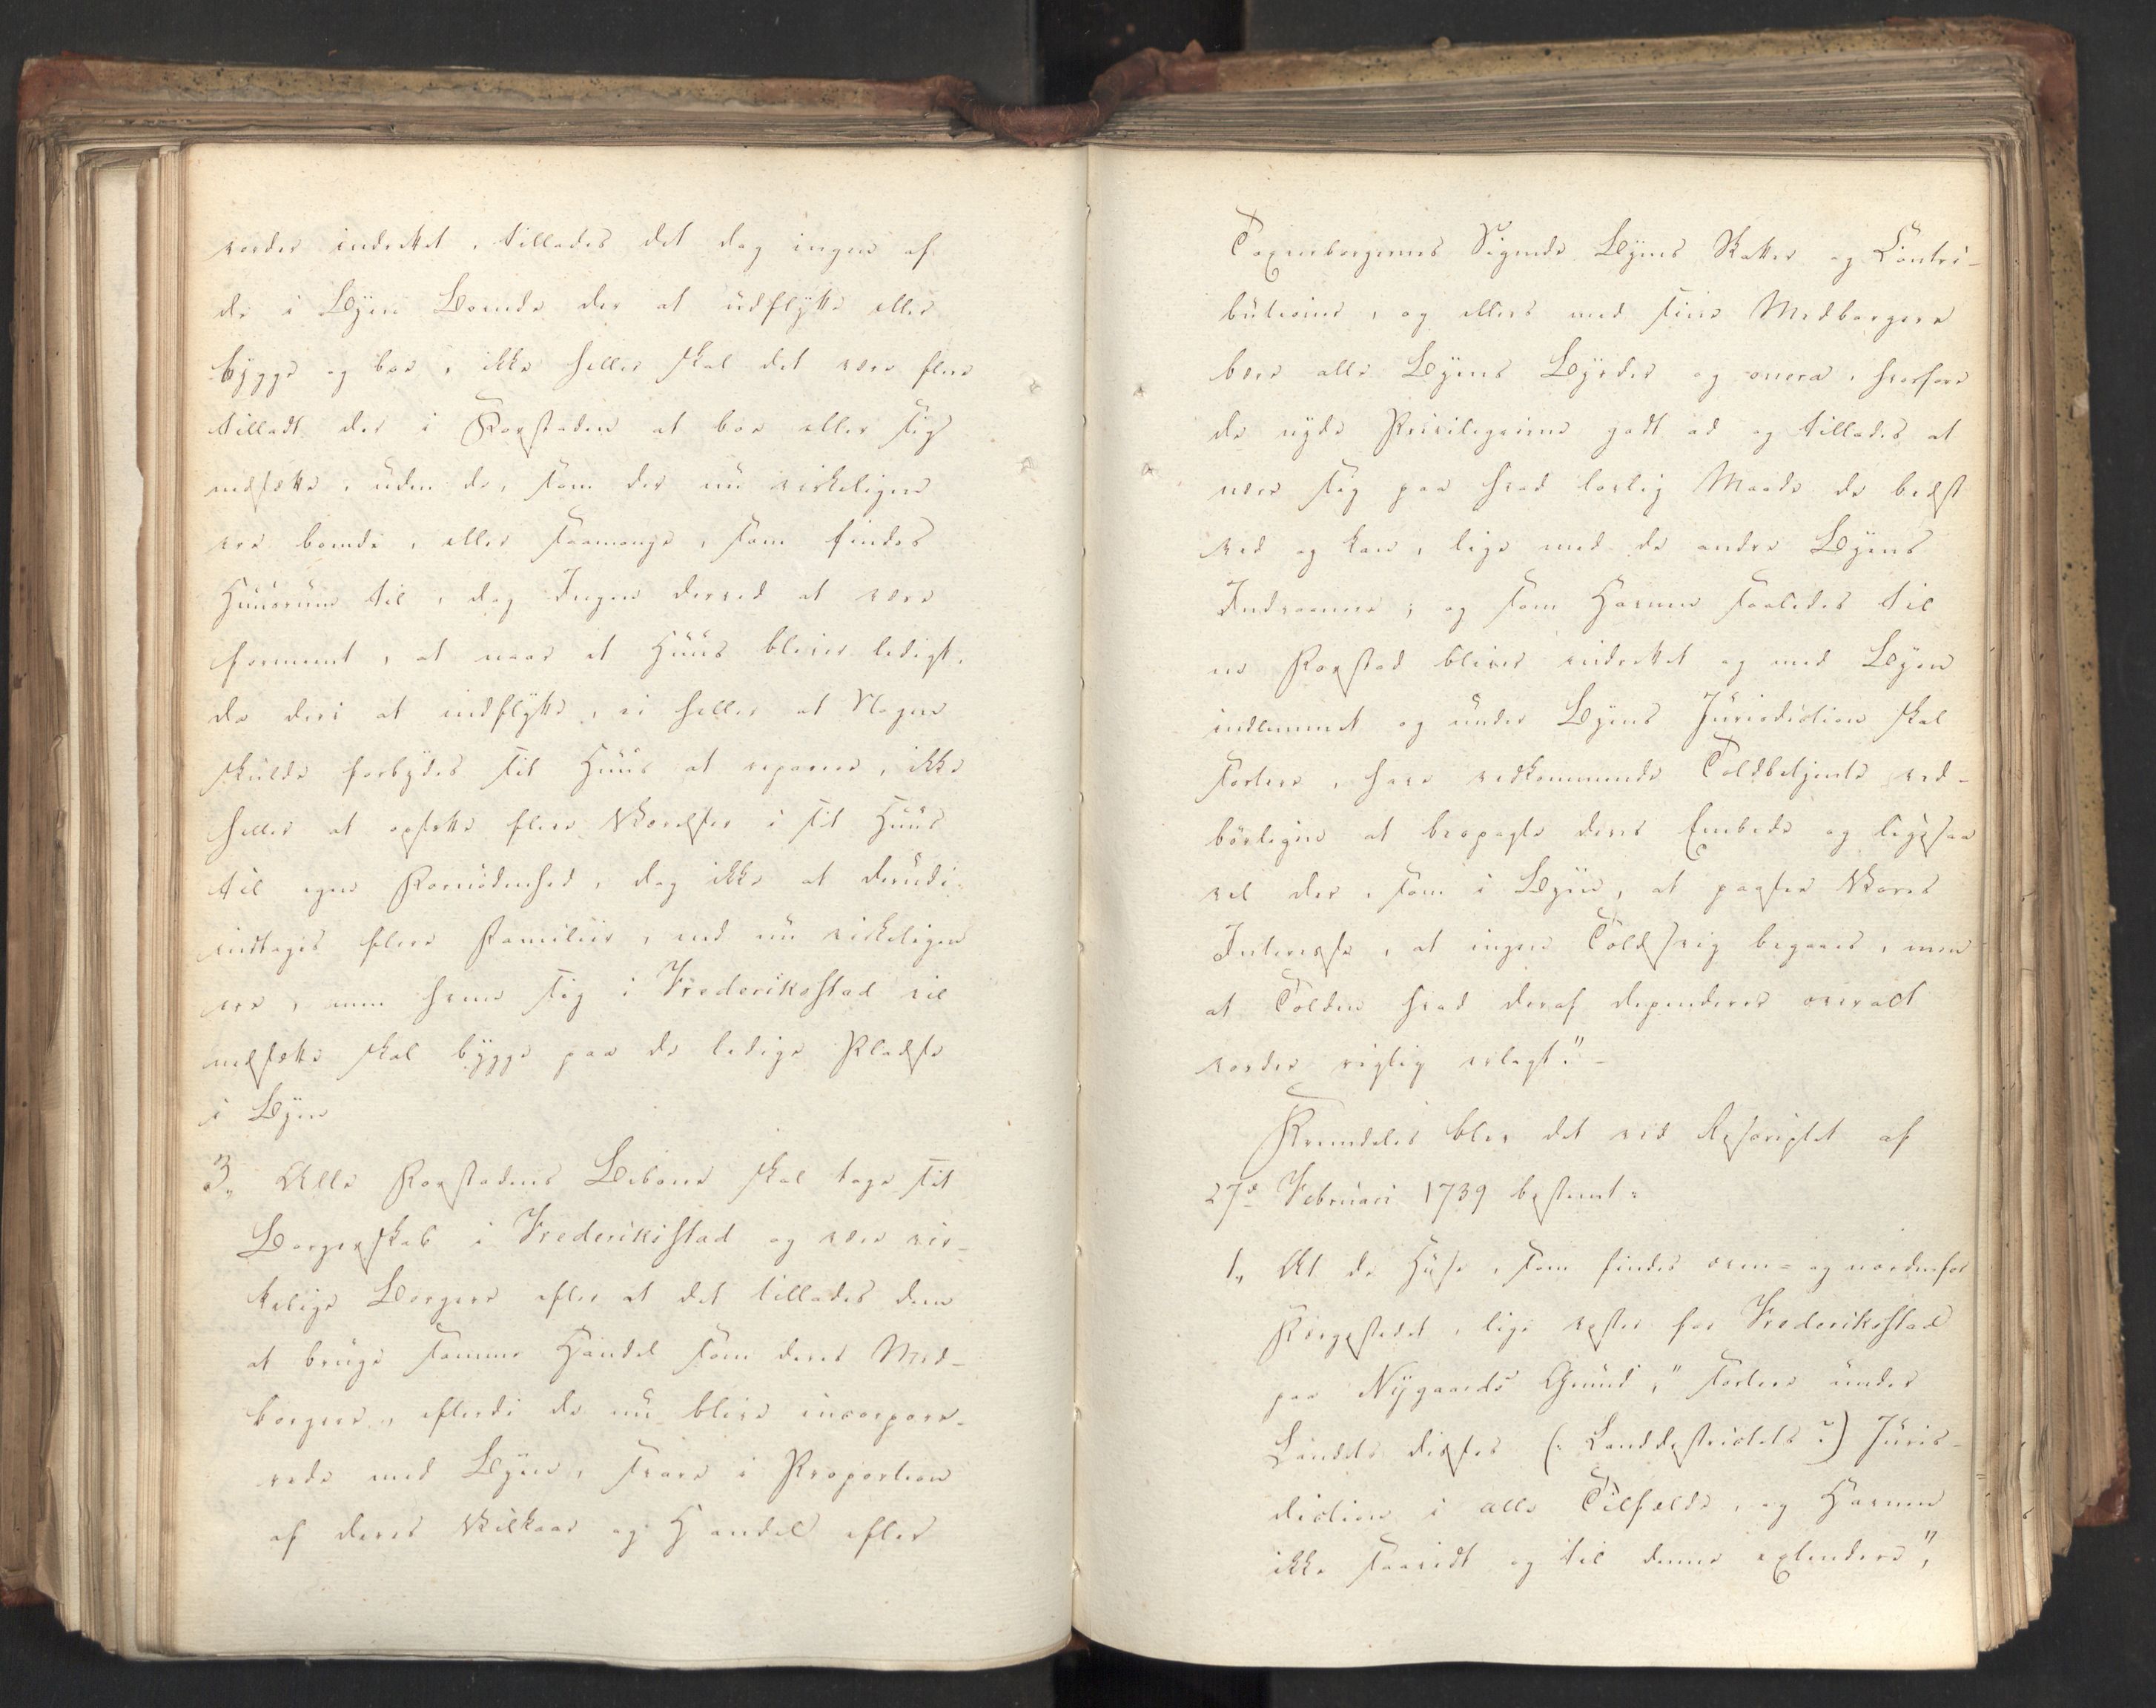 vorder indrettet, tillades det dog ingen af
de i Byen Boende der at udflytte eller
bygge og boe, ikke heller skal det være flere
tilladt der i Forstaden at boe eller sig
nedsætte, uden de, som der nu virkeligen
ere boende, eller saamange, som findes
Huusrum til, dog Ingen derved at være
formeent, at naar et Huus bliver ledigt,
da deri at indflytte, ei heller at Nogen
skulde forbydes sit Huus at reparere, ikke
heller at opsætte flere Værelser i sit Huus
til egen Fornødenhed, dog ikke at derudi
indtages flere Familier, end nu virkeligen
ere, men hvem sig i Frederikstad vil
nedsætte skal bygge paa de ledige Pladse
i Byen
3, Alle Forstadens Beboere skal tage sit
Borgerskab i Frederikstad og være vir-
kelige Borgere efter at det tillades dem
at bruge samme Handel som deres Med-
borgere, efterdi de nu blive incorpore-
rede med Byen, svare i Proportion
af deres Vilkaar og Handel efter
Taxeerborgernes Sigende Byens Skatter og Contri-
butioner, og ellers med sine Medborgere
bære alle Byens Byrder og onera, hvorfore
de nyde Privilegierne godt ad og tillades at
nære sig paa hvad lovlig Maade de bedst
ved og kan, lige med de andre Byens
Indvaanere; og som Havnen saaledes til
en Forstad bliver indrettet og med Byen
indlemmet og under Byens Jurisdiction skal
sortere, have vedkommende Toldbetjente ved-
børligen at besøgte deres Embede og ligesaa
vel der, som i Byen, at paasee Vores
Interesse, at ingen Toldsvig begaaes, men
at Tolden hvad deraf dependerer overalt
vorder rigtig erlagt." -
Fremdeles blev det ved Rescriptet af
27de Februari 1739 bestemt:
1, At de Huse, som findes oven- og nordenfor
Færgestedet, lige vester for Frederikstad
paa Nygaards Grund," sortere under
Landets disses (: Landdistrictets ?) Juris-
diction i alle Tilfælde, og Havnen
ikke saavidt og til denne extendere",